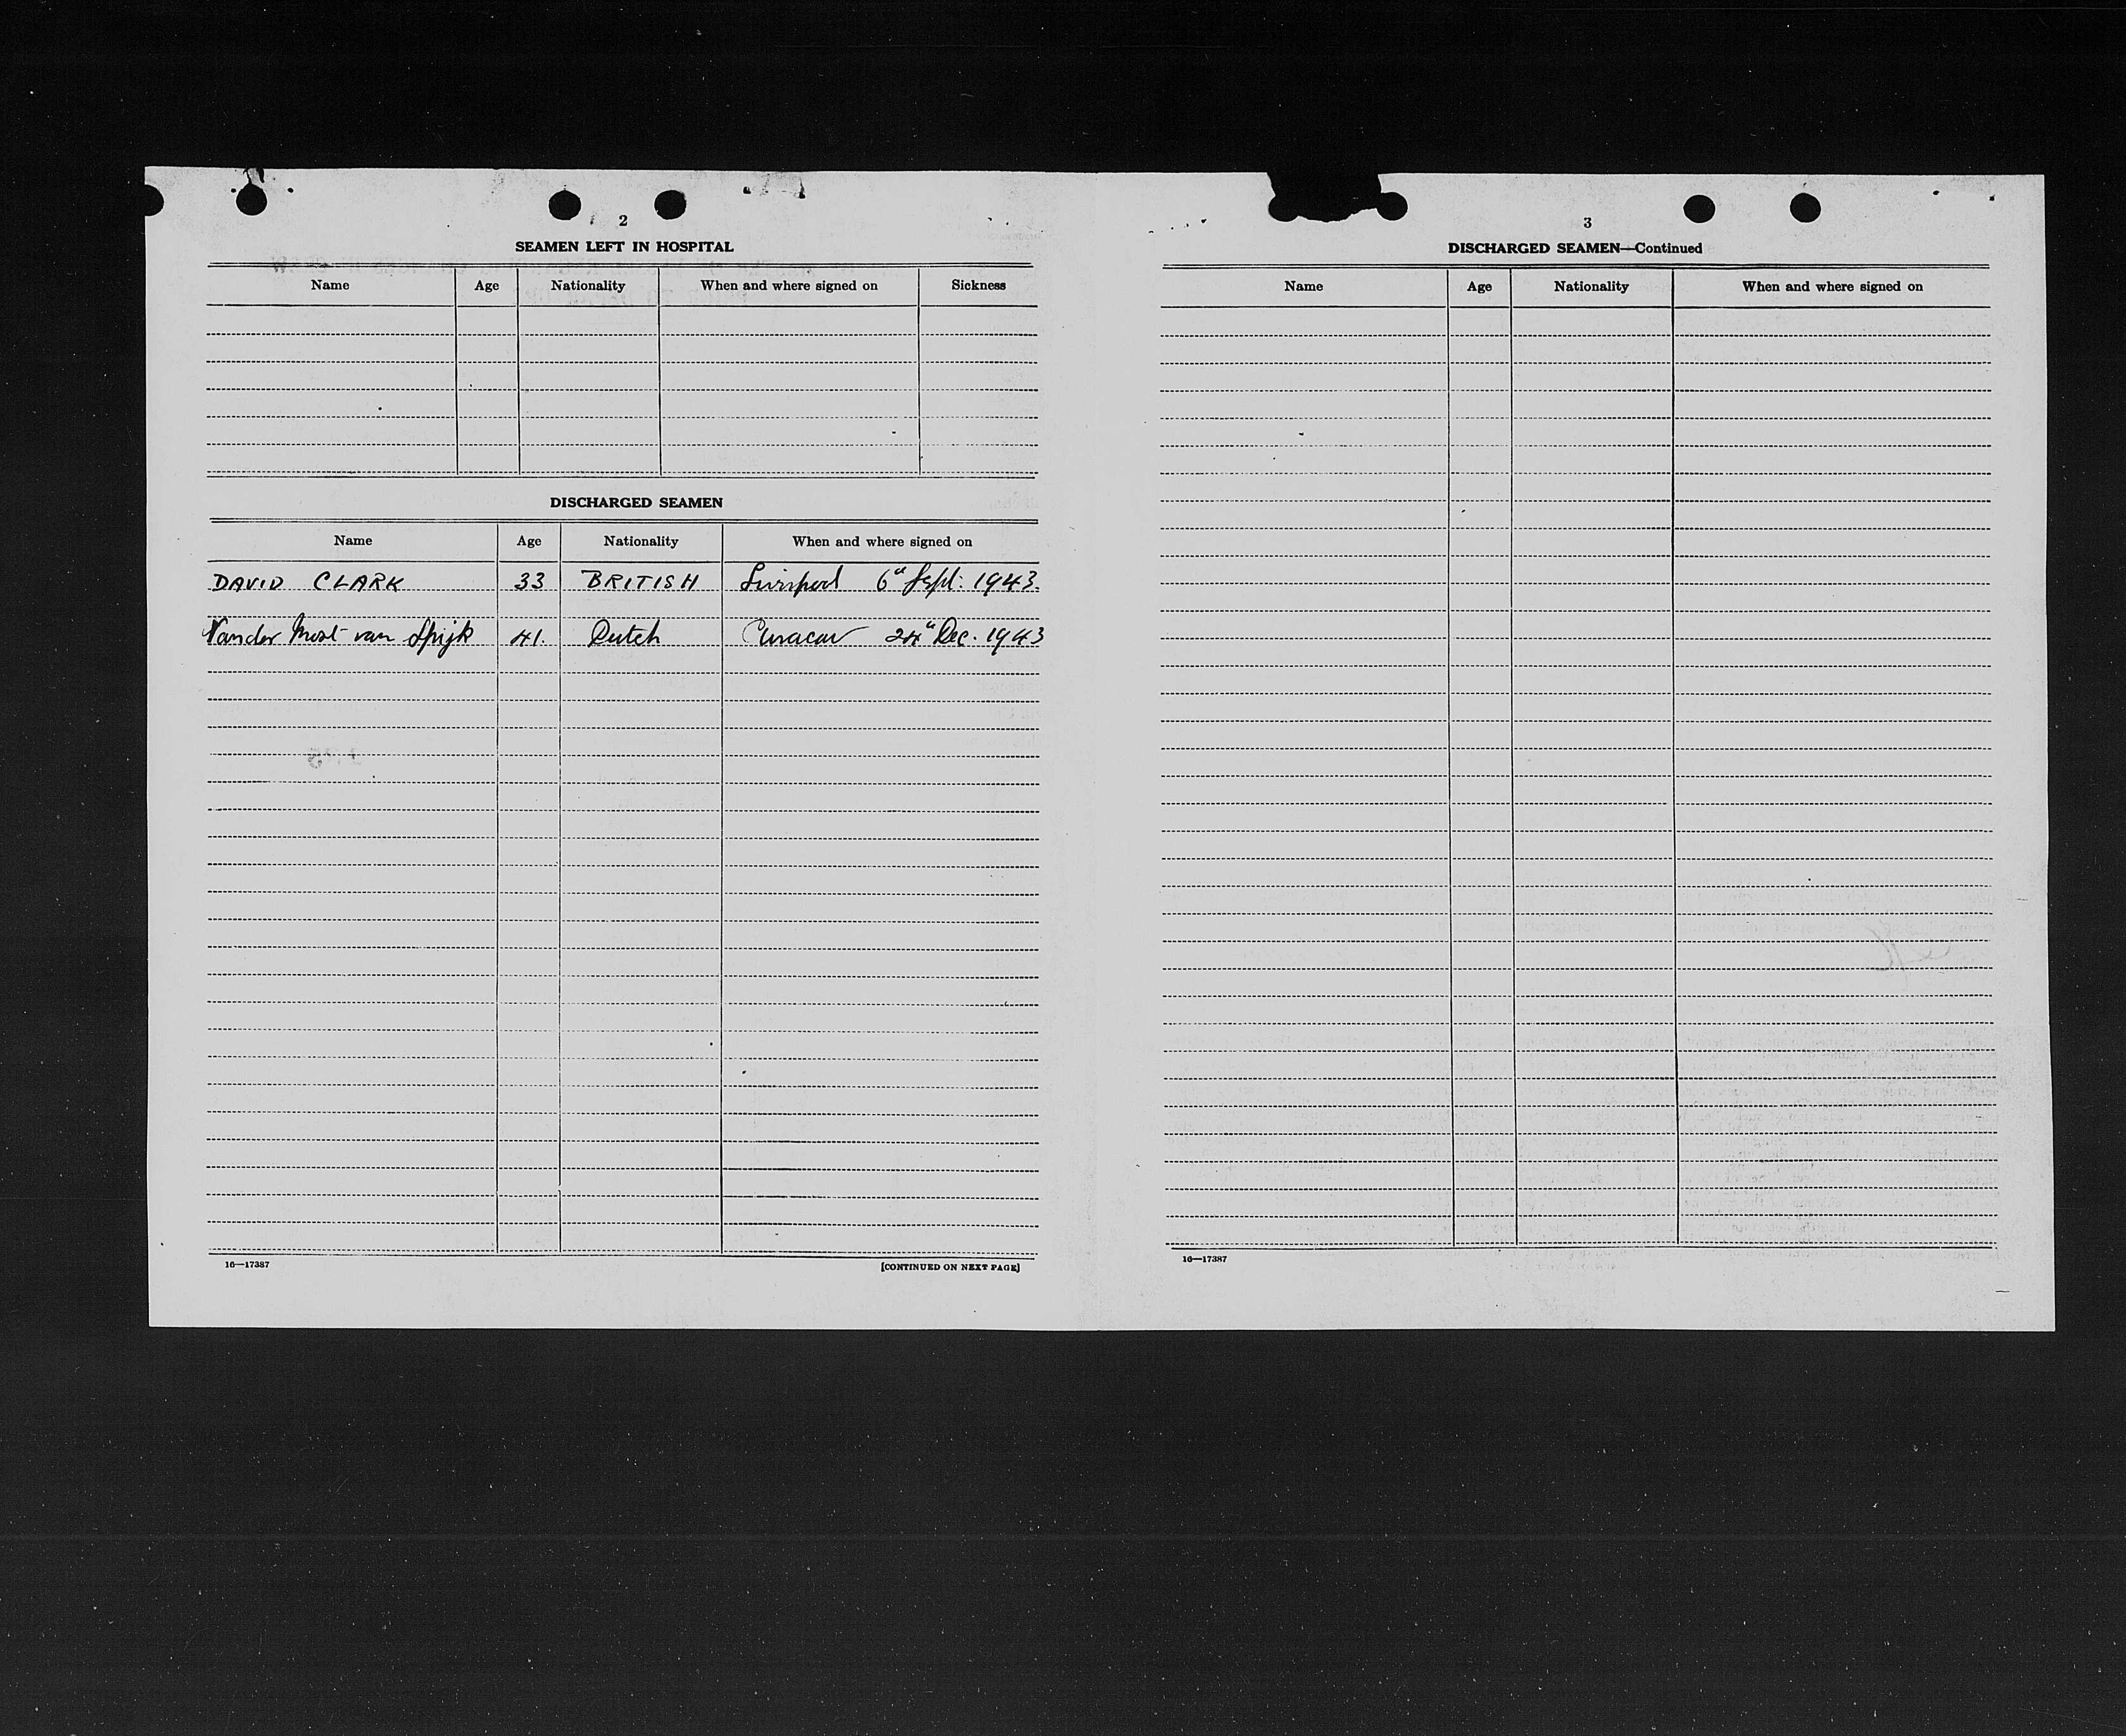 2
SEAMEN LEFT IN HOSPITAL
Name Age Nationality When and where signed on Sickness
DISCHARGED SEAMEN
Name Age Nationality When and where signed on
DAVID CLARK 33 BRITISH Liverpool 6th Sept: 1943.
Vander Most van Spijk 41. Dutch Curacao 24th Dec. 1943
16—17387
[CONTINUED ON NEXT PAGE]
3
DISCHARGED SEAMEN—Continued
Name Age Nationality When and where signed on
16—17387